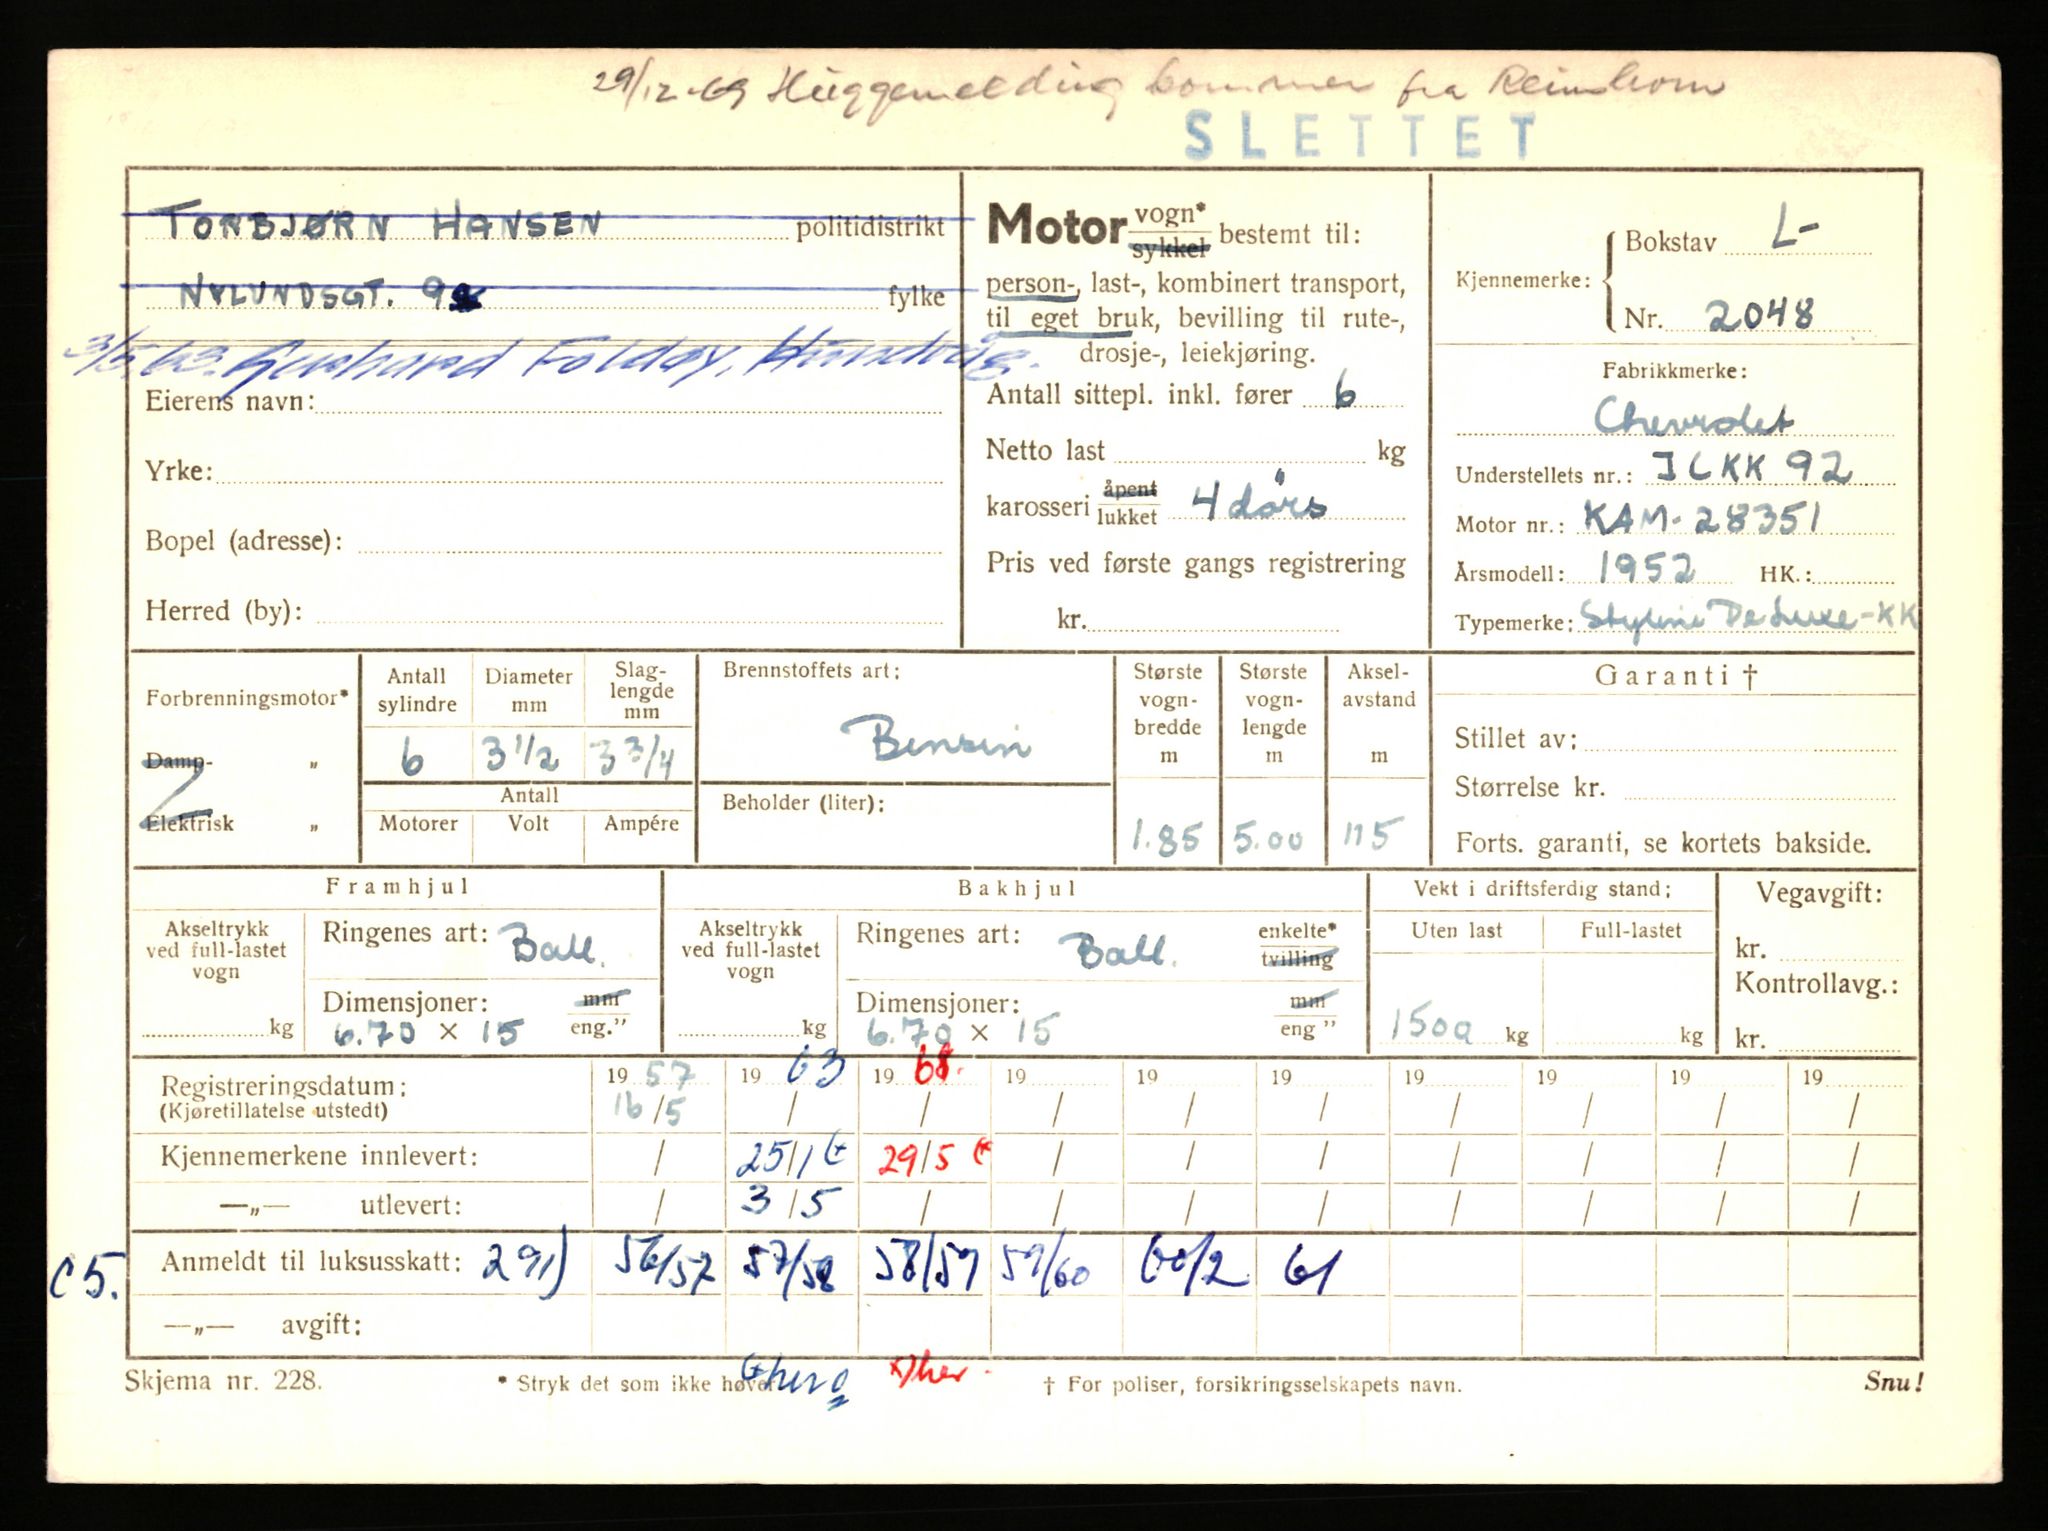 29/12-69 Huggemelding kommer fra Reimhom
SLETTET
TORBJØRN HANSEN politidistrikt
NYLUNDSGT. 9 fylke
3/5.63. Gerhard Foldøy, Hundvåg.
Eierens navn:
Yrke:
Bopel (adresse):
Herred (by):
Motor vogn* sykkel bestemt til:
person-, last-, kombinert transport,
til eget bruk, bevilling til rute-,
drosje-, leiekjøring.
Antall sittepl. inkl. fører 6
Netto last kg
karosseri åpent lukket 4 dørs
Pris ved første gangs registrering
kr.
Kjennemerke: Bokstav L-
Nr. 2048
Fabrikkmerke:
Chevrolet
Understellets nr.: JCKK 92
Motor nr.: KAM-28351
Årsmodell: 1952 HK.:
Typemerke: Styline De Luxe-KK
Forbrenningsmotor*
Damp- „
Elektrisk „
Antall sylindre 6
Diameter mm 3 1/2
Slag-lengde mm 3 3/4
Antall
Motorer Volt Ampére
Brennstoffets art:
Bensin
Beholder (liter):
Største vogn-bredde m 1.85
Største vogn-lengde m 5.00
Aksel-avstand m 115
Garanti †
Stillet av:
Størrelse kr.
Forts. garanti, se kortets bakside.
Framhjul
Akseltrykk ved full-lastet vogn kg
Ringenes art: Ball.
Dimensjoner: mm eng.”
6.70 × 15
Bakhjul
Akseltrykk ved full-lastet vogn kg
Ringenes art: Ball. enkelte* tvilling
Dimensjoner: mm eng ”
6.70 × 15
Vekt i driftsferdig stand:
Uten last Full-lastet
1500 kg kg
Vegavgift:
kr.
Kontrollavg.:
kr.
Registreringsdatum: 19 57 19 63 19 68. 19 19 19 19 19 19 19
(Kjøretillatelse utstedt) 16/5 / / / / / / / / /
Kjennemerkene innlevert: / 25/1 (* 29/5 (* / / / / / / /
—„— utlevert: / 3/5 / / / / / / / /
C5. Anmeldt til luksusskatt: 291) 56/57 57/58 58/59 59/60 60/2 61
—„— avgift:
(* her *) her.
Skjema nr. 228. * Stryk det som ikke høver † For poliser, forsikringsselskapets navn. Snu!